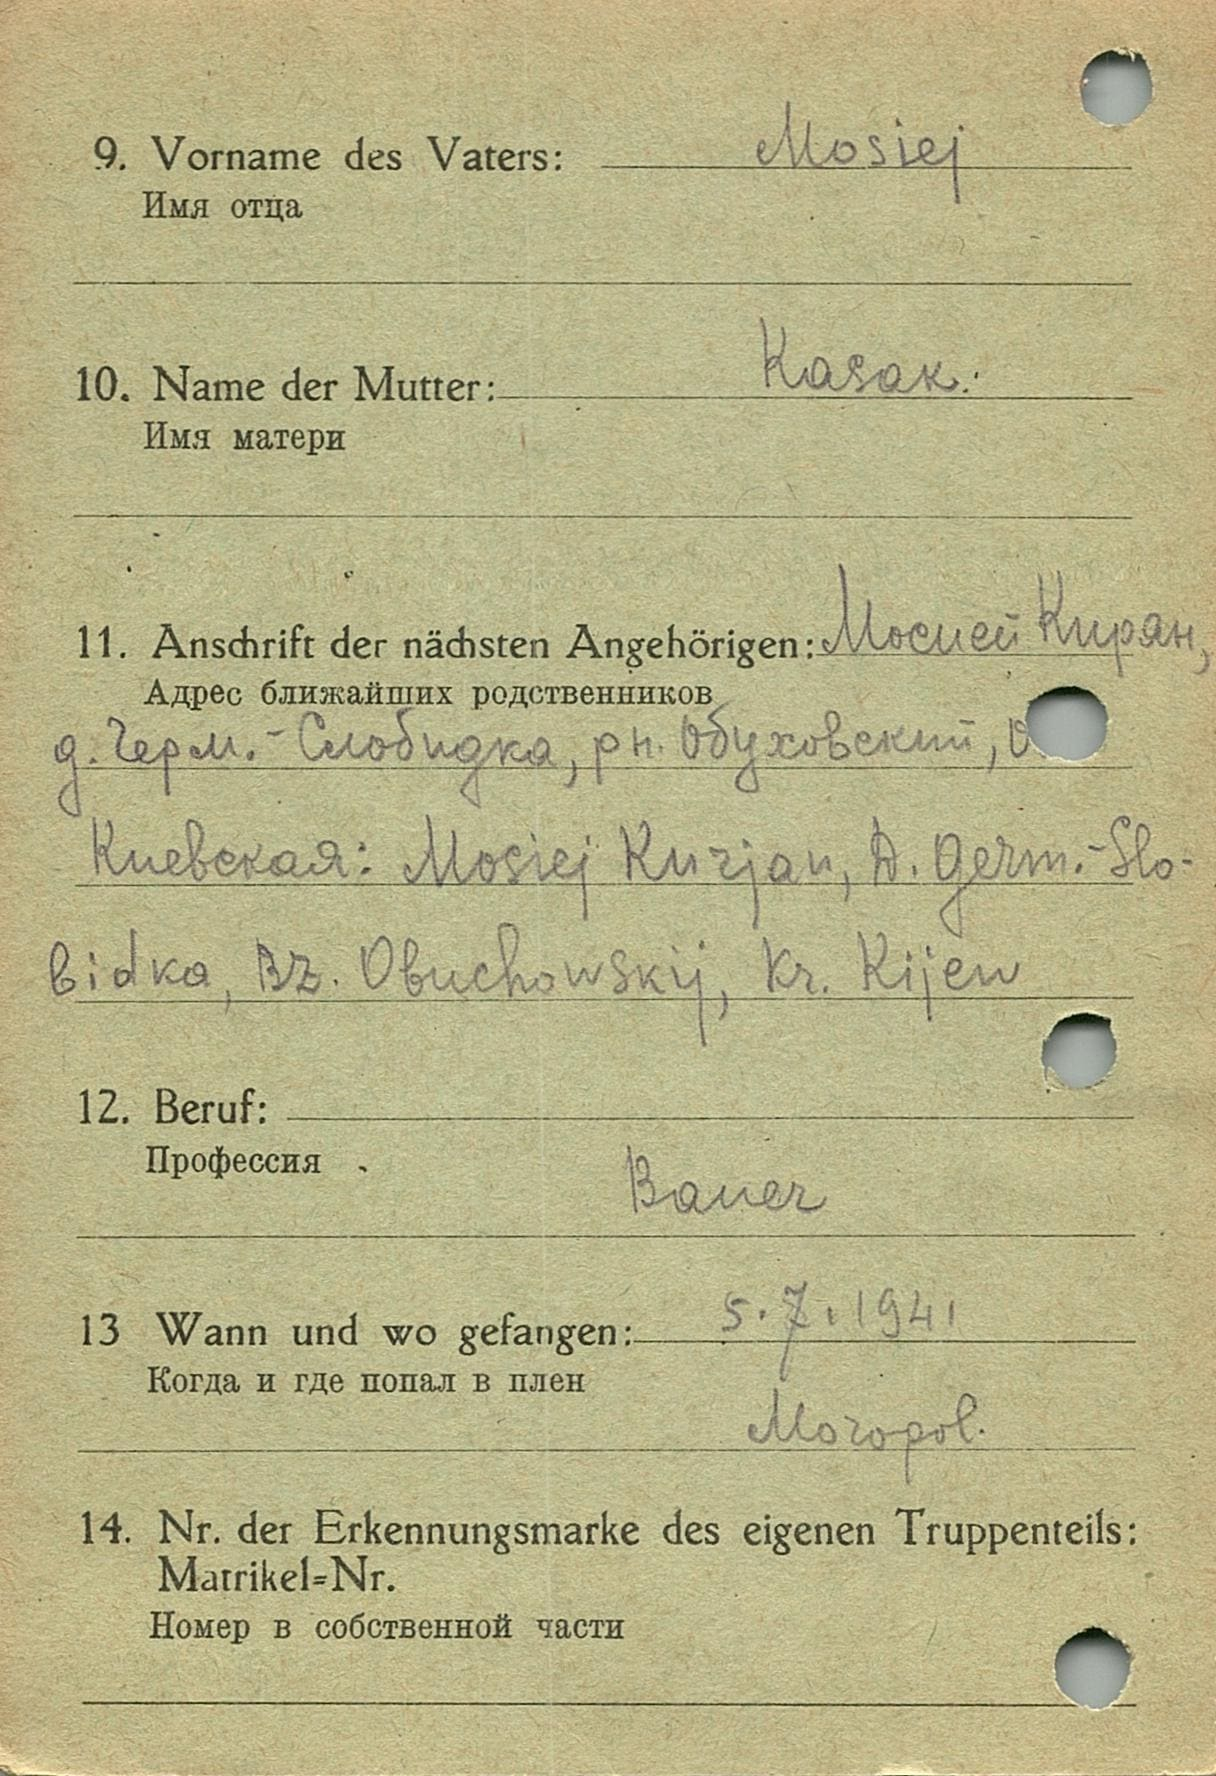 9. Vorname des Vaters: Mosiej
Имя отца
10. Name der Mutter: Kasak.
Имя матери
11. Anschrift der nächsten Angehörigen: Мосией Кирян,
Адрес ближайших родственников
д. Герм.-Слобидка, рн. Обуховский,
Киевская: Mosiej Kirjan, D. Germ.-Slo-
bidka, Bz. Obuchowskij, Kr. Kijew
12. Beruf:
Профессия
Bauer
13 Wann und wo gefangen: 5.7.1941
Когда и где попал в плен
Moropol.
14. Nr. der Erkennungsmarke des eigenen Truppenteils:
Matrikel=Nr.
Номер в собственной части